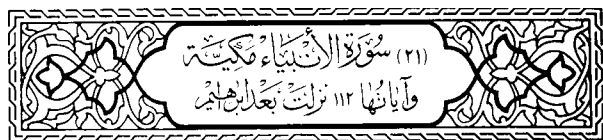 (٢١) سُورَة الأنبيَاء مكيَّة
وَآياتها ١١٢ نزلت بَعد ابراهيم